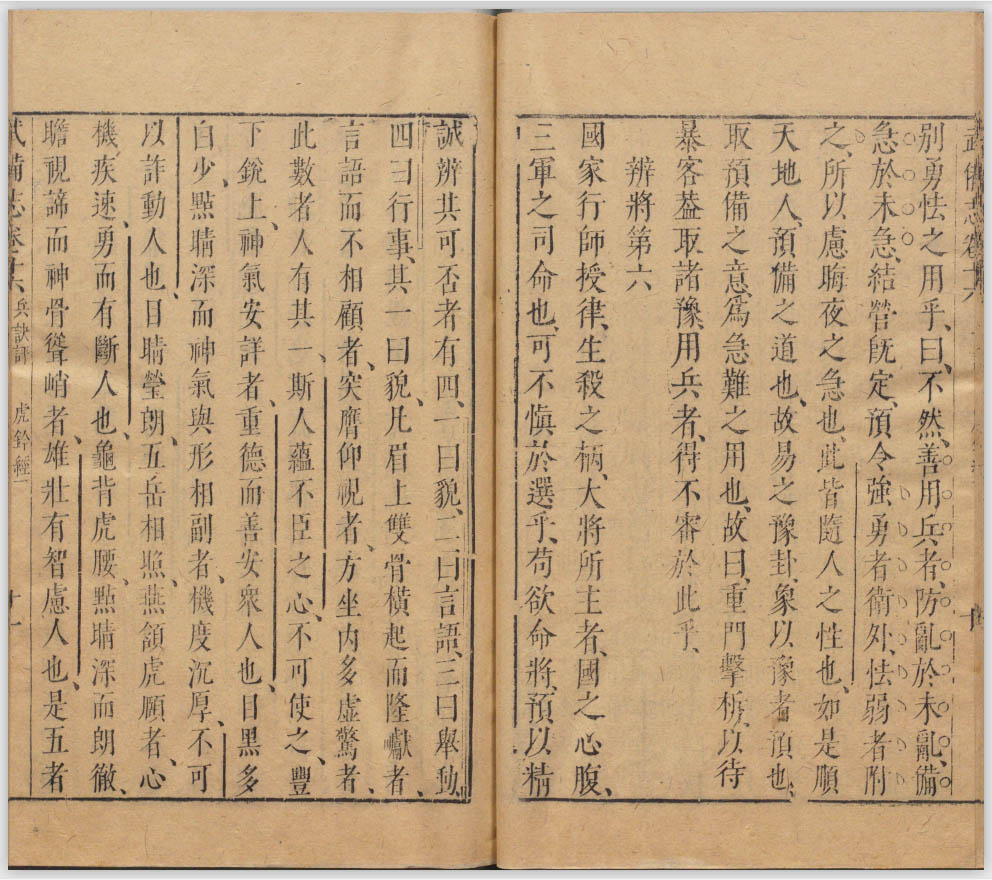 武備志卷十六
別勇怯之用乎、曰、不然、善用兵者、防亂於未亂、備
急於未急、結營旣定、預令強勇者衛外、怯弱者附
之、所以慮晦夜之急也、此皆隨人之性也、如是順
天地人、預備之道也、故易之豫卦、象以豫者預也、
取預備之意、爲急難之用也、故曰、重門擊柝、以待
暴客、葢取諸豫、用兵者、得不審於此乎、
辨將第六
國家行師授律、生殺之柄、大將所主者、國之心腹、
三軍之司命也、可不愼於選乎、苟欲命將、預以精
誠辨其可否者有四、一曰貌、二曰言語、三曰舉動、
四曰行事、其一曰貌、凡眉上雙骨橫起而隆巘者、
言語而不相顧者、突膺仰視者、方坐內多虛驚者、
此數者人有其一、斯人蘊不臣之心、不可使之、豐
下銳上、神氣安詳者、重德而善安衆人也、目黑多
白少、點睛深而神氣與形相副者、機度沉厚、不可
以詐動人也、目睛瑩朗、五岳相照、燕頷虎頋者、心
機疾速、勇而有斷人也、龜背虎腰、點睛深而朗徹、
瞻視諦而神骨聳峭者、雄壯有智慮人也、是五者
武備志卷十六 兵訣評 虎鈐經一 十一